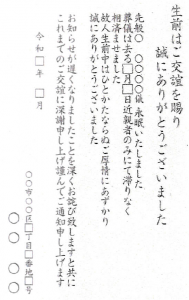 生前はご交誼を賜り
誠にありがとうございました
先般○ ○○○○儀 永眠いたしました
葬儀は去る□月□日近親者のみにて滞りなく
相済ませました
故人生前中はひとかたならぬご厚情にあずかり
誠にありがとうございました
お知らせが遅くなりましたことを深くお詫び致しますと共に
これまでのご交誼に深謝申し上げ謹んでご通知申し上げます
令和□年 □月
○○市○○区□丁目□番地□号
○○ ○○